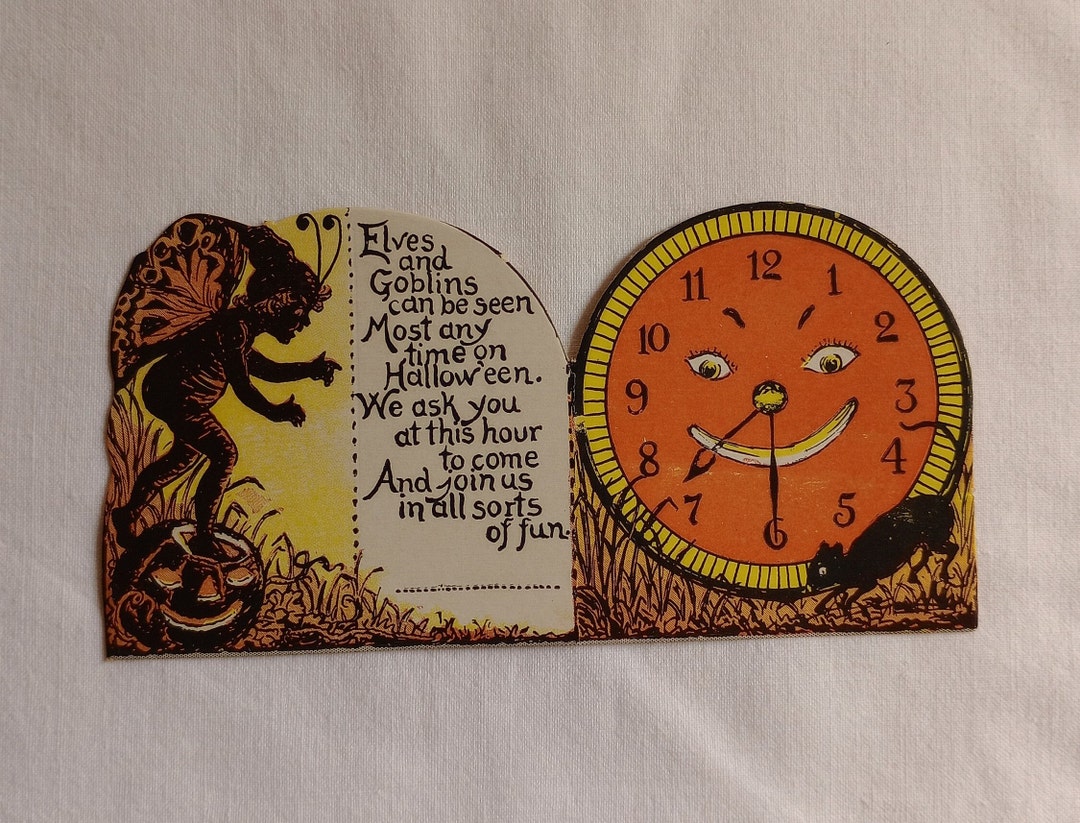 Elves
and
Goblins
can be seen
Most any
time on
Hallow'een.
We ask you
at this hour
to come
And join us
in all sorts
of fun.
12
11 1
10 2
9 3
8 4
7 5
6